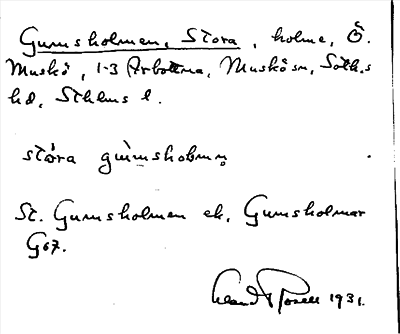 Gumsholmen, Stora, holme, Ö.
Muskö, 1-3 Arbottna, Muskösn, Soth.s
hd, Sthlms l.
stóra gùmshòlmen
St. Gumsholmen ek, Gumsholmar
G67.
1931.